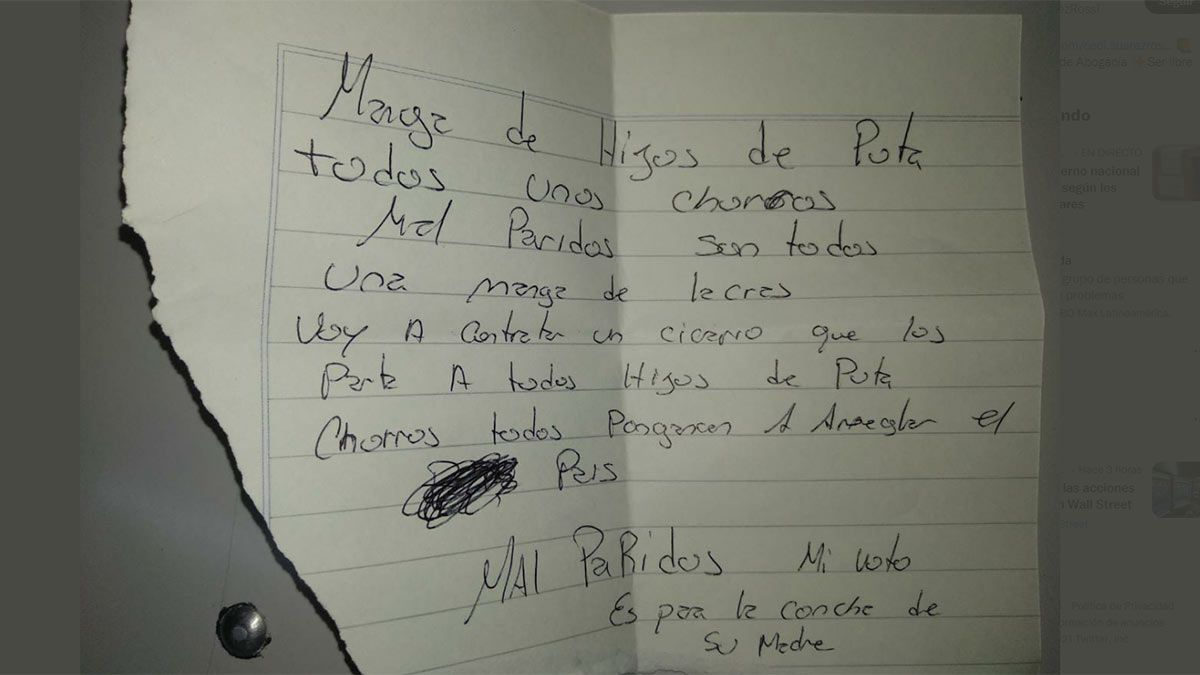 Manga de Hijos de Puta
todos unos chorros
Mal Paridos son todos
Una manga de lacras
Voy A Contratar un cicario que los
Parta A todos Hijos de Puta
Chorros todos Pongancen A Arreglar el
Pais
MAl PaRidos Mi voto
Es para la concha de
Su Madre
zRossi
om/ceci.suarezros...
de Abogacía
Ser libre
ndo
· EN DIRECTO
erno nacional
según los
ares
da
grupo de personas que
problemas
BO Max Latinoamérica.
· Hace 3 horas
las acciones
n Wall Street
Street
Política de Privacidad
ormación de anuncios
21 Twitter, Inc